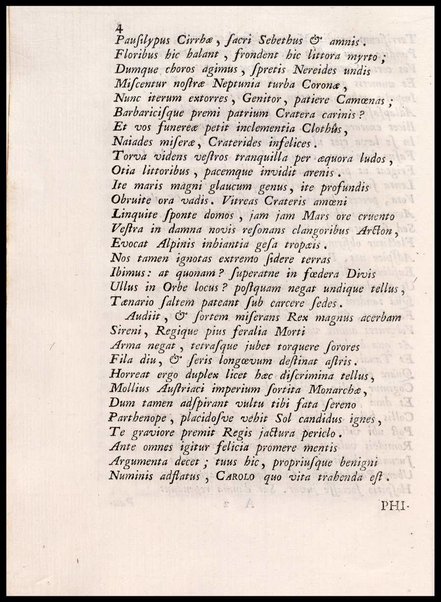 4
Pauſilypus Cirrhæ, ſacri Sebethus & amnis.
Floribus hic halant, frondent hic littora myrto;
Dumque choros agimus, ſpretis Nereides undis
Miſcentur noſtræ Neptunia turba Coronæ,
Nunc iterum extorres, Genitor, patiere Camœnas;
Barbariciſque premi patrium Cratera carinis?
Et vos funereæ petit inclementia Clothûs,
Naiades miſeræ, Craterides infelices.
Torva videns veſtros tranquilla per æquora ludos,
Otia littoribus, pacemque invidit arenis.
Ite maris magni glaucum genus, ite profundis
Obruite ora vadis. Vitreas Crateris amœni
Linquite ſponte domos, jam jam Mars ore cruento
Veſtra in damna novis reſonans clangoribus Arcton,
Evocat Alpinis inhiantia geſa tropæis.
Nos tamen ignotas extremo ſidere terras
Ibimus: at quonam? ſuperatne in fœdera Divis
Ullus in Orbe locus? poſtquam negat undique tellus,
Tænario ſaltem pateant ſub carcere ſedes.
Audiit, & ſortem miſerans Rex magnus acerbam
Sireni, Regique pius feralia Morti
Arma negat, tetraſque jubet torquere ſorores
Fila diu, & ſeris longœvum deſtinat aſtris.
Horreat ergo duplex licet hæc diſcrimina tellus,
Mollius Auſtriaci imperium ſortita Monarchæ,
Dum tamen adſpirant vultu tibi fata ſereno
Parthenope, placidoſve vehit Sol candidus ignes,
Te graviore premit Regis jactura periclo.
Ante omnes igitur felicia promere mentis
Argumenta decet; tuus hic, propriuſque benigni
Numinis adflatus, CAROLO quo vita trahenda eſt.
PHI-